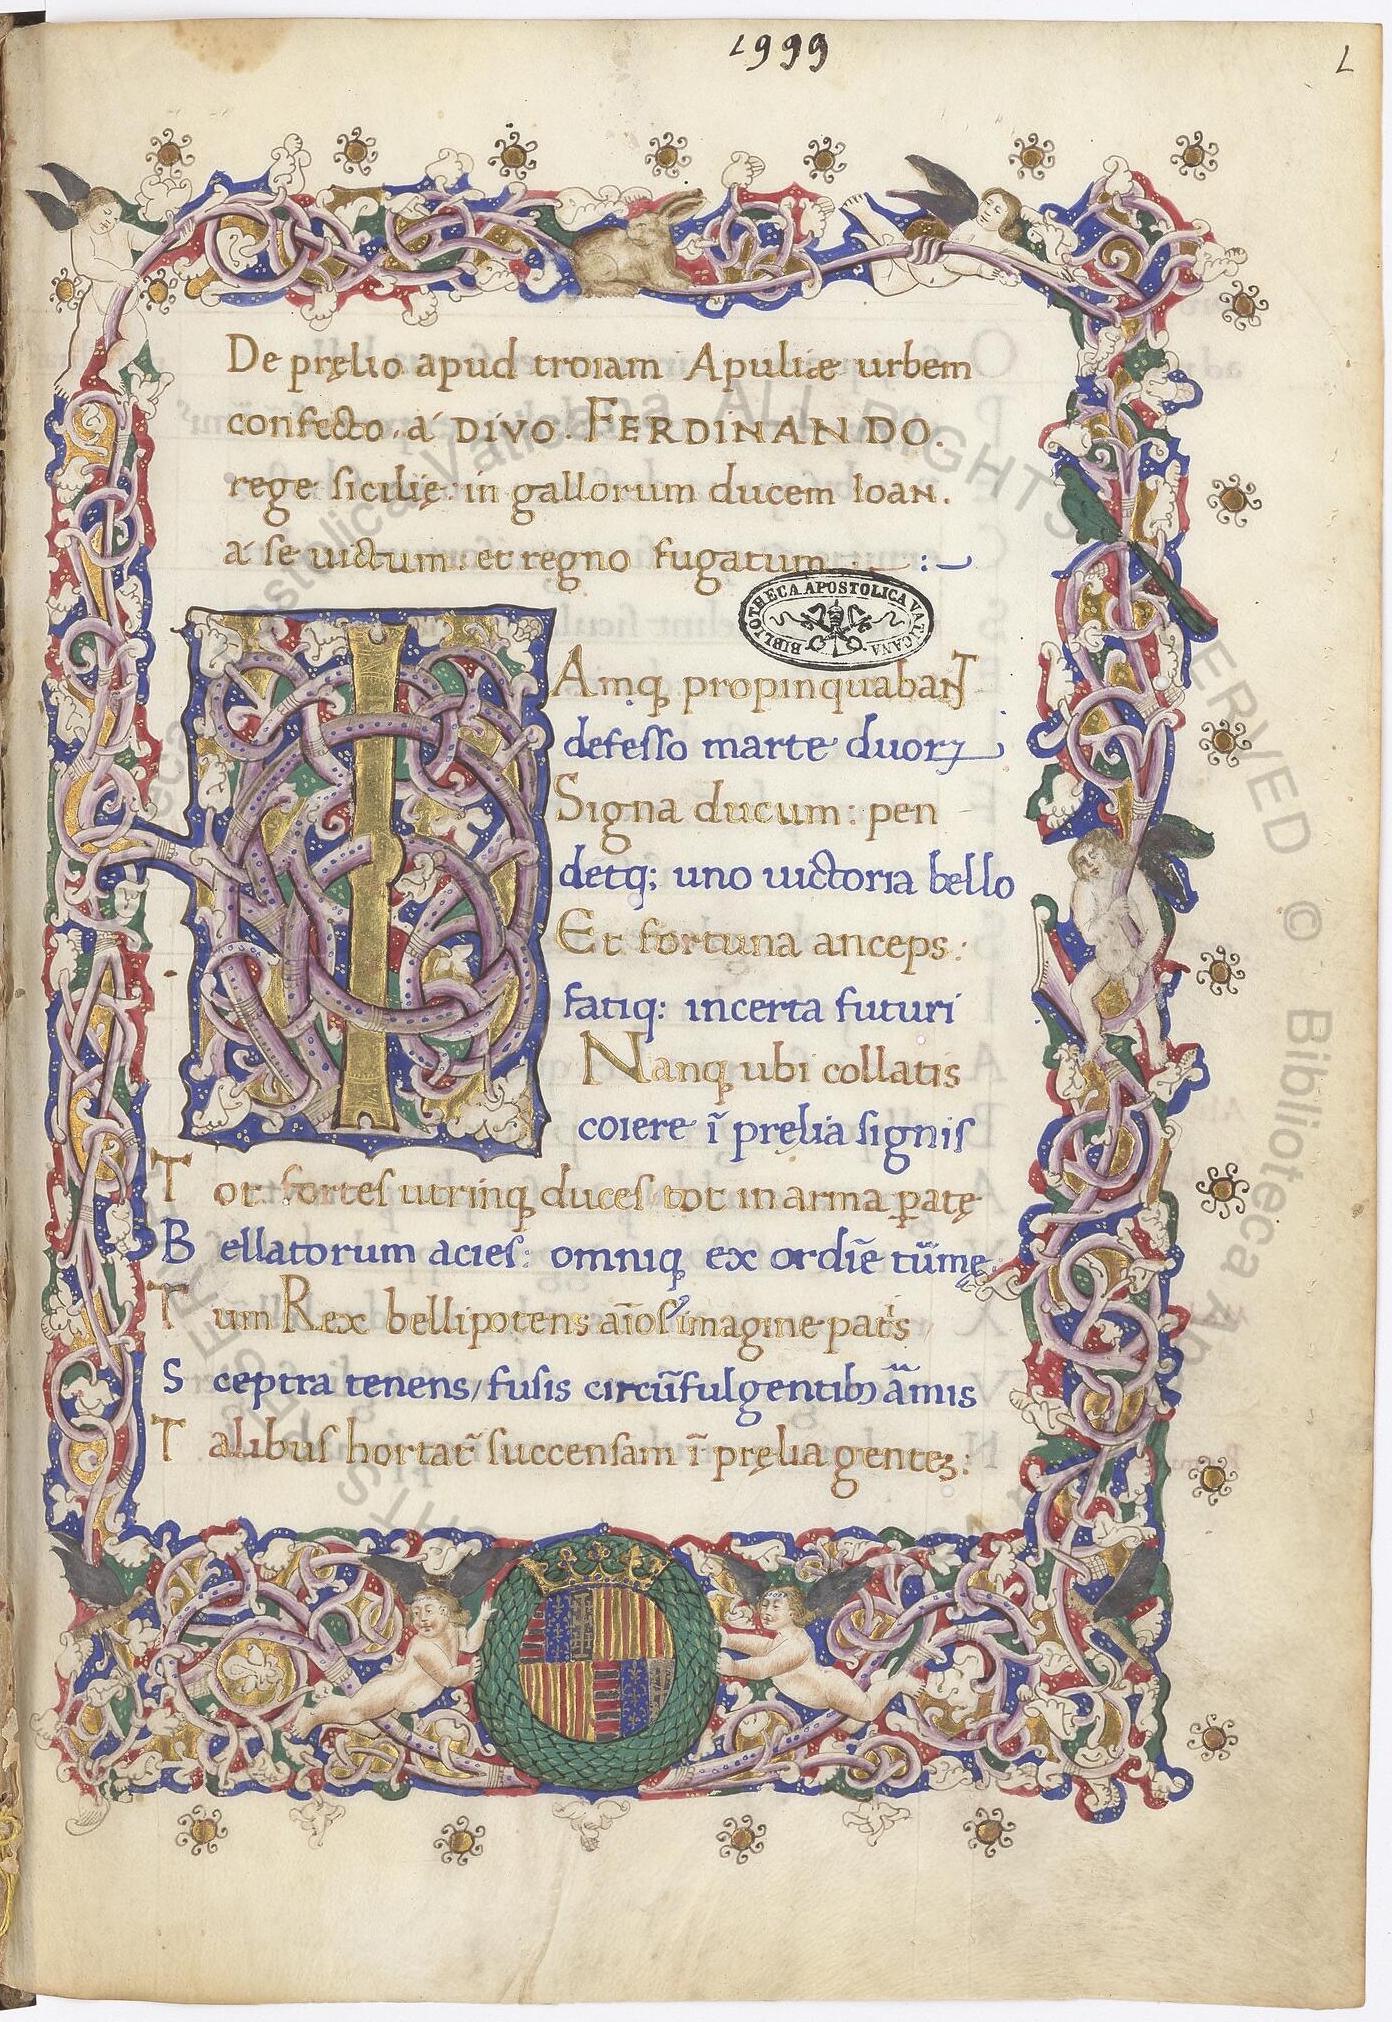 1999
1
De pręlio apud troiam Apuliæ urbem
confecto. á DIVO. FERDINANDO.
rege sicilię: in gallorum ducem Ioan.
á se uictum. et regno fugatum :
BIBLIOTHECA APOSTOLICA VATICANA
IAmq propinquabanT
defesso marte duorꝝ
Signa ducum: pen
detq; uno uictoria bello
Et fortuna anceps:
fatiq: incerta futuri
Nanq ubi collatis
coiere ĩ pręlia signis
Tot fortes utrinq duces tot in arma ꝑatę
Bellatorum acies: omniq ex ordiẽ tũmę
Tum Rex bellipotens aĩos imagine pat͛s
Sceptra tenens/ fusis circũfulgentibꝫ ãmis
Talibus hortat᷑ succensam ĩ pręlia gentez:
Biblioteca Apostolica Vaticana ALL RIGHTS RESERVED © Biblioteca Ap